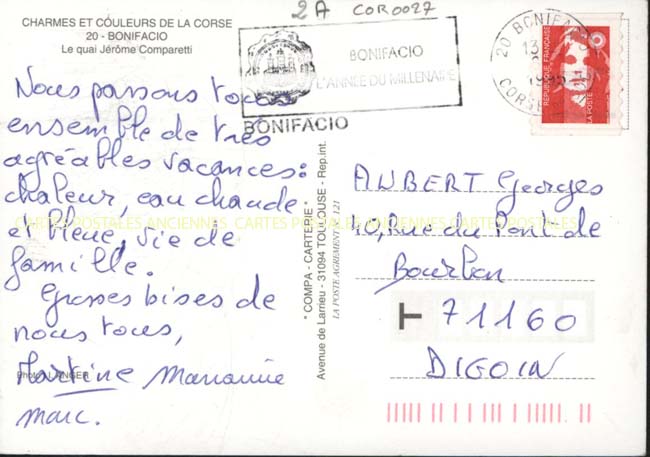 CHARMES ET COULEURS DE LA CORSE
20 - BONIFACIO
Le quai Jérôme Comparetti
2A COR0027
BONIFACIO
L'ANNEE DU MILLENAIRE
BONIFACIO
20 BONIFACIO
13
CORSE
REPUBLIQUE FRANÇAISE
LA POSTE
Nous passons tous
ensemble de très
agréables vacances:
chaleur, eau chaude
et bleue, vie de
famille.
Grosses bises de
nous tous,
Martine Marianne
Marc.
CARTES POSTALES ANCIENNES CARTES POSTALES ANCIENNES
" COMPA - CARTERIE "
Avenue de Larrieu - 31094 TOULOUSE - Rep.int.
LA POSTE AGREMENT N° 121
AUBERT Georges
40, Rue du Pont de
Bourbon
71160
DIGOIN